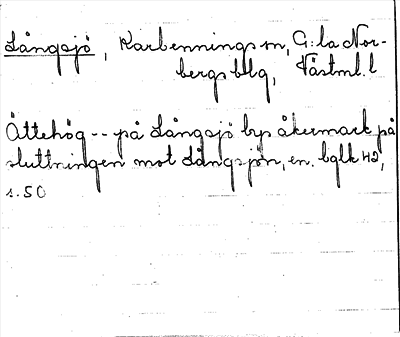 Långsjö, Karbennings sn, G:la Nor-
bergs blg, Västml. l
Ättehög -- på Långsjö bys åkermark på
sluttningen mot Långsjön, en. bglk 42,
s. 50